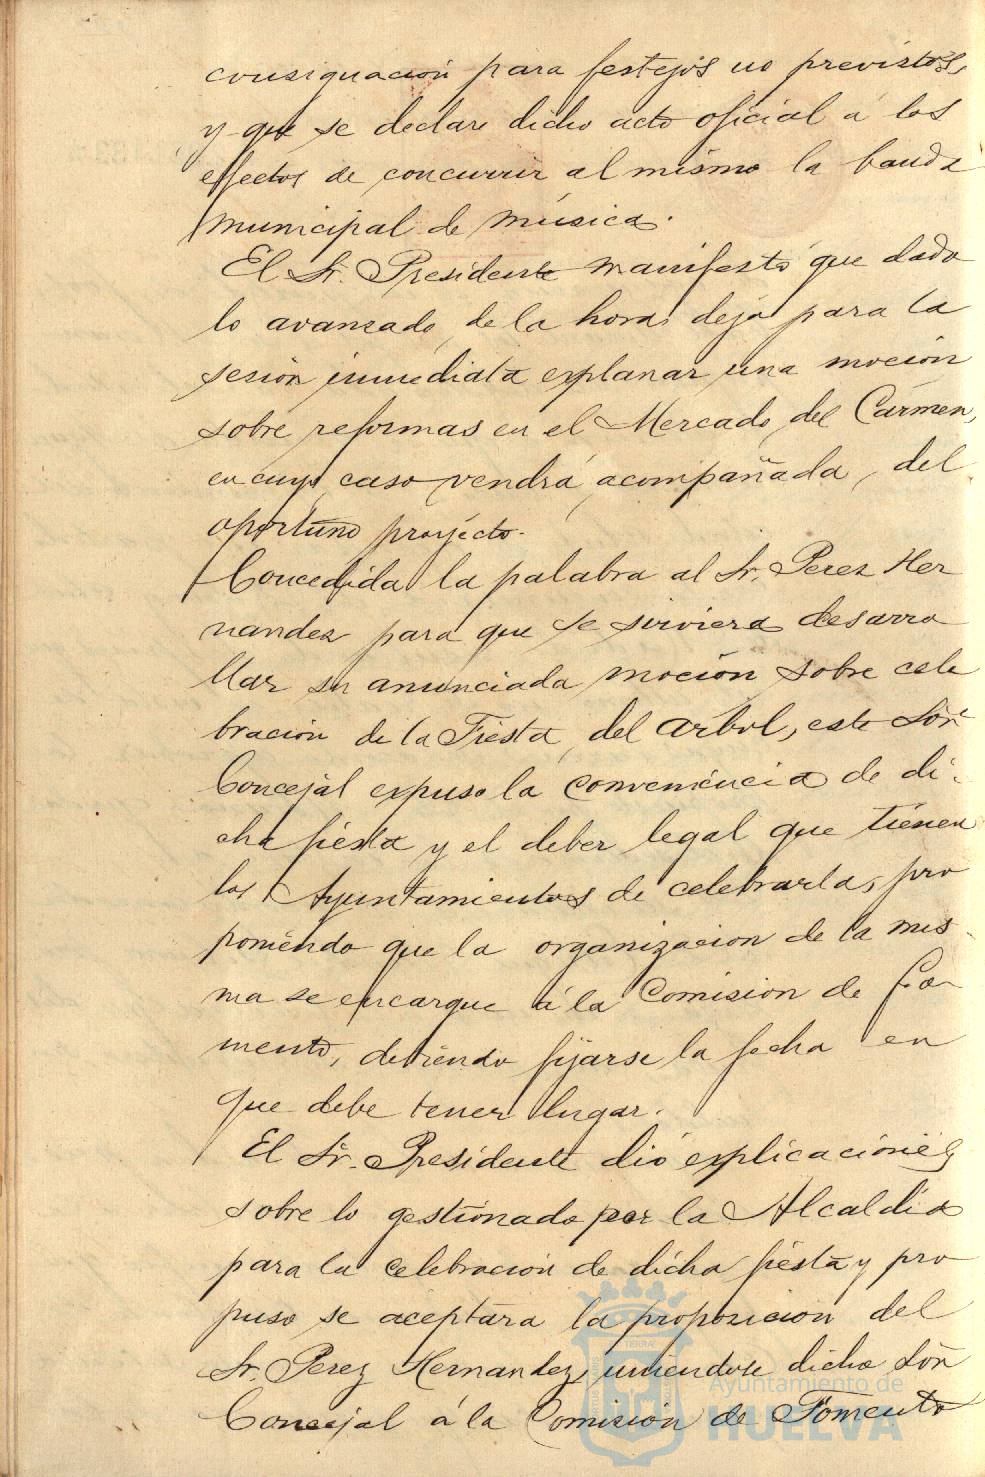 consignación para festejos no previstos,
y que se declare dicho acto oficial á los
efectos de concurrir al mismo la banda
municipal de música.
El Sr. Presidente manifestó que dado
lo avanzado de la hora, deja para la
sesión inmediata explanar una moción
sobre reformas en el Mercado del Carmen,
en cuyo caso vendrá acompañada del
oportuno proyecto.
Concedida la palabra al Sr. Perez Her
nandez para que se sirviera desarro
llar su anunciada moción sobre cele
bración de la Fiesta del Arbol, este Sōr
Concejal expuso la conveniencia de di-
cha fiesta y el deber legal que tienen
los Ayuntamientos de celebrarla, pro
poniendo que la organización de la mis-
ma se encargue á la Comisión de Fo-
mento, debiendo fijarse la fecha en
que debe tener lugar.
El Sr. Presidente dió explicaciones
sobre lo gestionado por la Alcaldía
para la celebración de dicha fiesta y pro
puso se aceptara la proposición del
Sr. Perez Hernandez, uniendose dicho Sōr
Concejal á la Comisión de Fomento
Ayuntamiento de
HUELVA